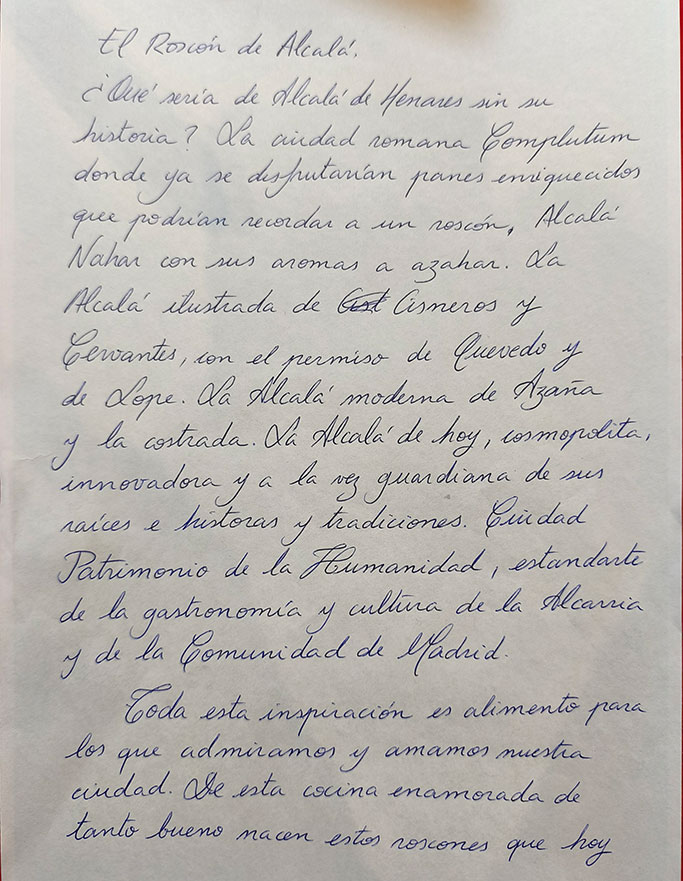 El Roscón de Alcalá.
¿Qué sería de Alcalá de Henares sin su
historia? La ciudad romana Complutum
donde ya se disfrutarían panes enriquecidos
que podrían recordar a un roscón, Alcalá
Nahar con sus aromas a azahar. La
Alcalá ilustrada de Cisneros y
Cervantes, con el permiso de Quevedo y
de Lope. La Alcalá moderna de Azaña
y la costrada. La Alcalá de hoy, cosmopolita,
innovadora y a la vez guardiana de sus
raíces e historas y tradiciones. Ciudad
Patrimonio de la Humanidad, estandarte
de la gastronomía y cultura de la Alcarria
y de la Comunidad de Madrid.
Toda esta inspiración es alimento para
los que admiramos y amamos nuestra
ciudad. De esta cocina enamorada de
tanto bueno nacen estos roscones que hoy